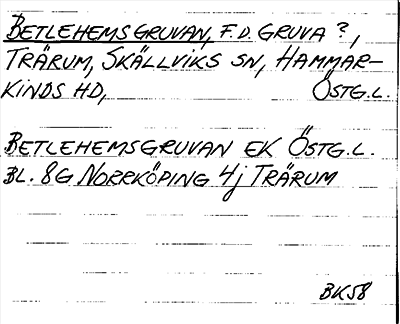 BETLEHEMSGRUVAN, F.D. GRUVA?,
TRÄRUM, SKÄLLVIKS SN, HAMMAR-
KINDS HD, ÖSTG.L.
BETLEHEMSGRUVAN EK ÖSTG.L.
BL. 8G NORRKÖPING 4j TRÄRUM
BK58